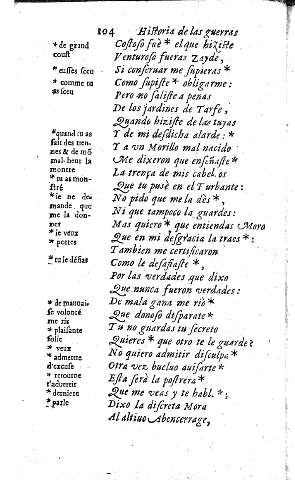 104 Historia de las guerras
* de grand
coust
* eusses sceu
* comme tu
as sceu
*quand tu as
fait des tien-
nes & de mõ
mal-heur la
monstre
* tu as mon-
stré
* ie ne de-
mande. que
me la don-
ner
* ie veux
* portes
* tu le défias
* de mauuaise
volonté
me ris
* plaisante
folie
* veux
* admettre
d'excuse
* retourne
t'aduertir
* derniere
* parle
Costoso fuè * el que hiziste
Venturoso fueras Zayde,
Si conseruar me supieras *
Como supiste * obligarme:
Pero no saliste a penas
De los jardines de Tarfe,
Quando hiziste de las tuyas
Y de mi desdicha alarde: *
Y a vn Morillo mal nacido
Me dixeron que enseñaste *
La trença de mis cabellos
Que tu pusè en el Turbante:
No pido que me la dès *,
Ni que tampoco la guardes:
Mas quiero * que entiendas Moro
Que en mi desgracia la traes *:
Tambien me certificaron
Como le desafiaste *,
Por las verdades que dixo
Que nunca fueron verdades:
De mala gana me rio *
Que donoso disparate *
Tu no guardas tu secreto
Quieres * que otro te le guarde?
No quiero admitir disculpa *
Otra vez bueluo auisarte *
Esta serà la postrera *
Que me veas y te habl. *;
Dixo la discreta Mora
Al altiuo Abencerrage,